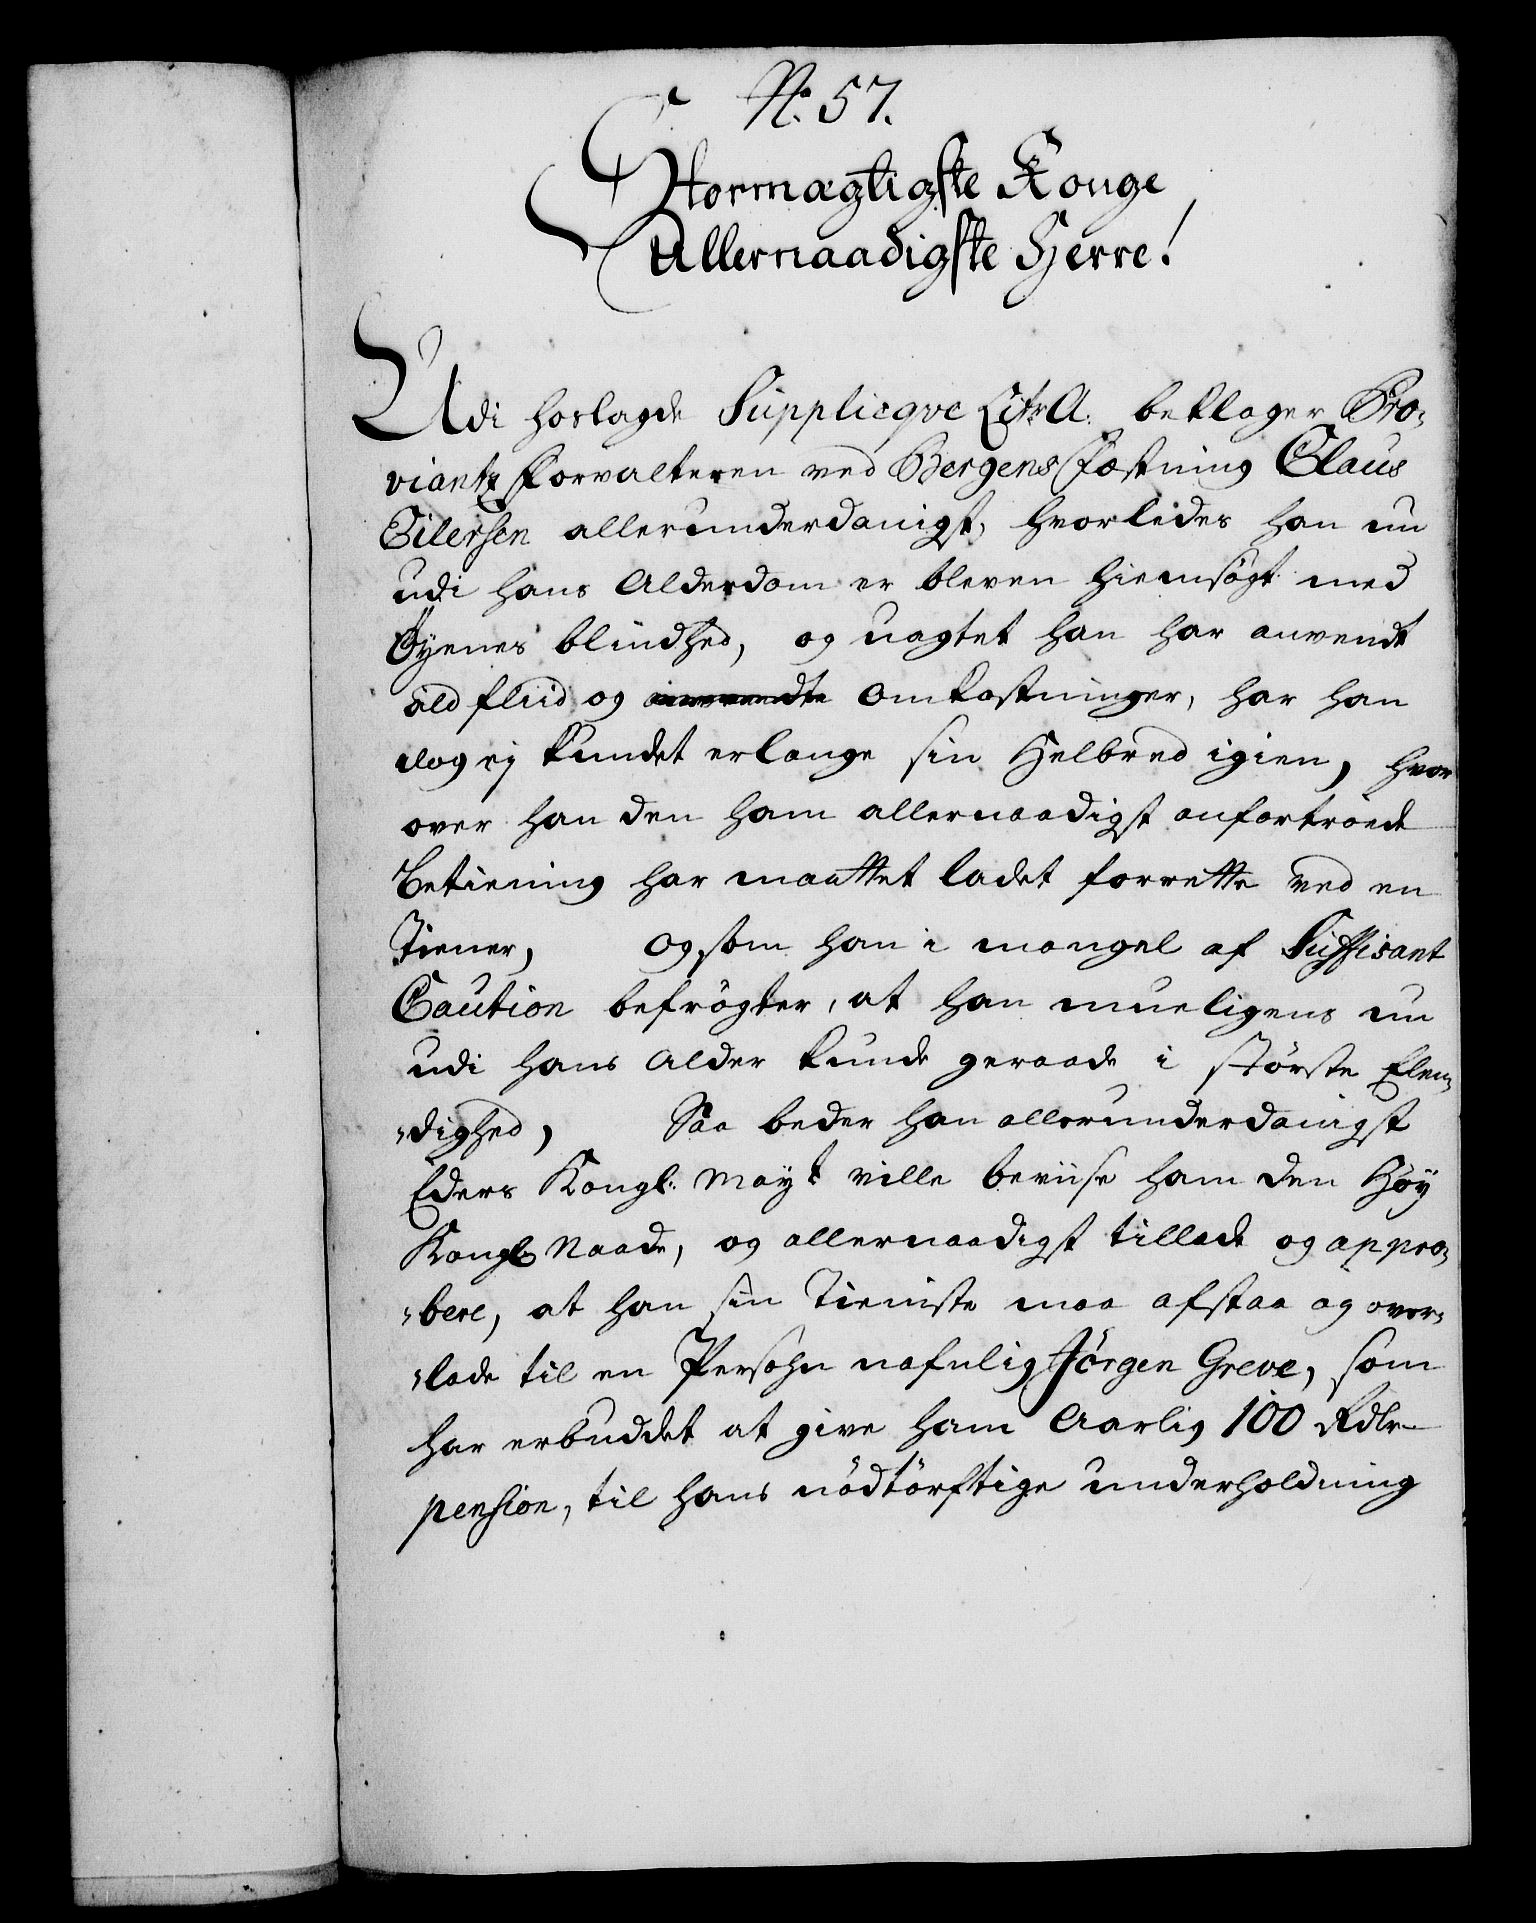 No. 57.
Stormægtigste Konge
Allernaadigste Herre!
Udi hoslagde Supplicqve Litr A. beklager Pro-
viantz Forvalteren ved Bergens Fæstning Claus
Eilersen allerunderdanigst, hvorledes han nu
udi hans Alderdom er bleven hiemsögt med
Öyenes blindhed, og uagtet han har anvendt
all fliid og omkostninger, har han
dog ej kundet erlange sin Helbred igien, hvor
over han den ham allernaadigst anfortroede
Betiening har maattet ladet forrette ved en
Tiener, og som han i mangel af Suffisant
Caution befrögter, at han mueligens nu
udi hans Alder kunde geraade i störste Elen-
-dighed, Saa beder han allerunderdanigst
Eders Kongl: Mayt ville beviise ham den Höy
Kongl Naade, og allernaadigst tillade og appro-
-bere, at han sin Tieniste maa afstaa og over-
-lade til en Persohn nafnlig Jörgen Greve, som
har erbuddet at give ham Aarlig 100 Rdlr
pension, til hans nödtörftige underholdning